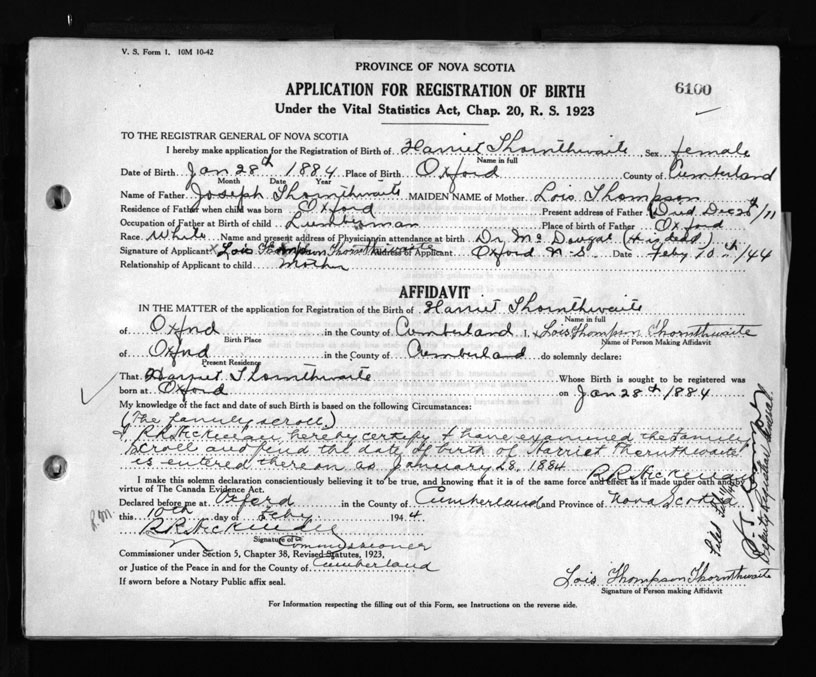 V. S. Form 1. 10M 10-42
PROVINCE OF NOVA SCOTIA
6100
APPLICATION FOR REGISTRATION OF BIRTH
Under the Vital Statistics Act, Chap. 20, R. S. 1923
TO THE REGISTRAR GENERAL OF NOVA SCOTIA
I hereby make application for the Registration of Birth of Harriet Thornthwaite, Sex female
Name in full
Date of Birth Jan 28th 1884 Place of Birth Oxford County of Cumberland
Month Date Year
Name of Father Joseph Thornthwaite MAIDEN NAME of Mother Lois Thompson
Residence of Father when child was born Oxford Present address of Father (Died Dec 26th/11
Occupation of Father at Birth of child Lumberman Place of birth of Father Oxford
Race White Name and present address of Physician in attendance at birth Dr. McDougal (H is dead)
Signature of Applicant X Lois Thompson Thornthwaite Address of Applicant Oxford N-S. Date Feby 10th/44
Relationship of Applicant to child Mother
AFFIDAVIT
IN THE MATTER of the application for Registration of the Birth of Harriet Thornthwaite
Name in full
of Oxford in the County of Cumberland I, X Lois Thompson Thornthwaite
Birth Place Name of Person Making Affidavit
of Oxford in the County of Cumberland do solemnly declare:
Present Residence
That Harriet Thornthwaite Whose Birth is sought to be registered was
born at Oxford on Jan 28th 1884
My knowledge of the fact and date of such Birth is based on the following Circumstances:
(The family scroll)
I, hereby certify I have examined the family
scroll and find the date of birth of Harriet Thornthwaite
is entered thereon as January 28, 1884
I make this solemn declaration conscientiously believing it to be true, and knowing that it is of the same force and effect as if made under oath and by
virtue of The Canada Evidence Act.
Declared before me at Oxford in the County of Cumberland and Province of Nova Scotia
this 10th day of Feby 1944
Signature of a Commissioner
Commissioner under Section 5, Chapter 38, Revised Statutes, 1923,
or Justice of the Peace in and for the County of Cumberland
If sworn before a Notary Public affix seal.
Lois Thompson Thornthwaite
Signature of Person making Affidavit
For Information respecting the filling out of this Form, see Instructions on the reverse side.
Deputy Registrar General.